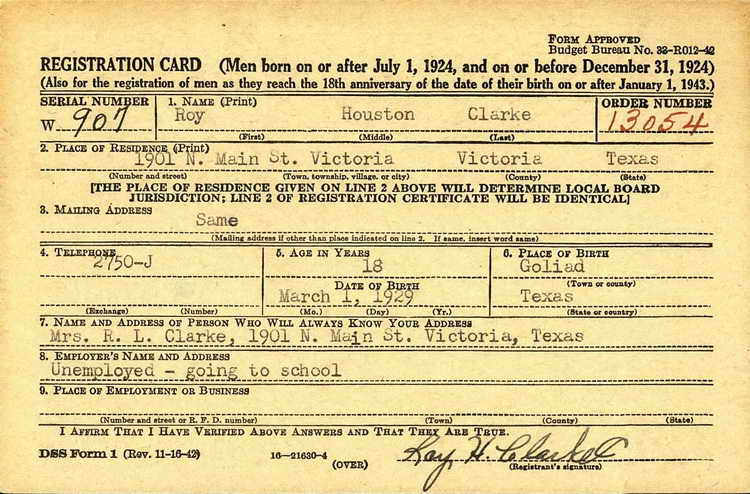 FORM APPROVED
Budget Bureau No. 33-R012-42
REGISTRATION CARD (Men born on or after July 1, 1924, and on or before December 31, 1924)
(Also for the registration of men as they reach the 18th anniversary of the date of their birth on or after January 1, 1943.)
SERIAL NUMBER 1. NAME (Print) ORDER NUMBER
W 907 Roy Houston Clarke 13054
(First) (Middle) (Last)
2. PLACE OF RESIDENCE (Print)
1901 N. Main St. Victoria Victoria Texas
(Number and street) (Town, township, village, or city) (County) (State)
[THE PLACE OF RESIDENCE GIVEN ON LINE 2 ABOVE WILL DETERMINE LOCAL BOARD
JURISDICTION; LINE 2 OF REGISTRATION CERTIFICATE WILL BE IDENTICAL]
3. MAILING ADDRESS
Same
(Mailing address if other than place indicated on line 2. If same, insert word same)
4. TELEPHONE 5. AGE IN YEARS 6. PLACE OF BIRTH
2750-J 18 Goliad
(Town or county)
DATE OF BIRTH
March 1, 1929 Texas
(Exchange) (Number) (Mo.) (Day) (Yr.) (State or country)
7. NAME AND ADDRESS OF PERSON WHO WILL ALWAYS KNOW YOUR ADDRESS
Mrs. R. L. Clarke, 1901 N. Main St. Victoria, Texas
8. EMPLOYER'S NAME AND ADDRESS
Unemployed - going to school
9. PLACE OF EMPLOYMENT OR BUSINESS
(Number and street or R. F. D. number) (Town) (County) (State)
I AFFIRM THAT I HAVE VERIFIED ABOVE ANSWERS AND THAT THEY ARE TRUE.
DSS Form 1 (Rev. 11-16-42) 16-21630-4 Roy H. Clarke
(OVER) (Registrant's signature)